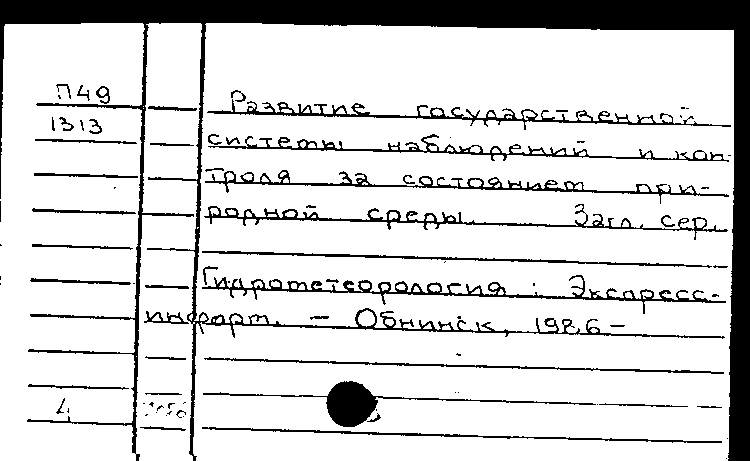 П49
1313
Развитие государственной
системы наблюдений и кон-
троля за состоянием при-
родной среды. Загл. сер.
Гидрометеорология: Экспресс-
информ. – Обнинск, 1986 –
4